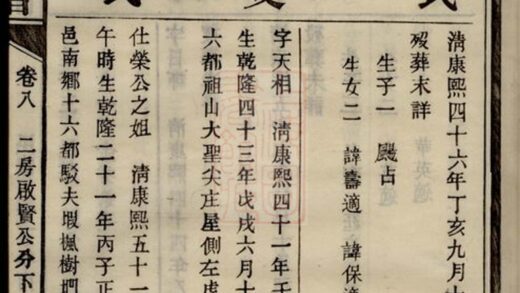 清康熙四十六年丁亥九月
歿葬未詳
生子一 颺占
生女二 諱壽適 諱保適
字天相 清康熙四十一年壬
生乾隆四十三年戊戌六月十
六都祖山大聖尖庄屋側左虎
仕榮公之姐 清康熙五十一
午時生乾隆二十一年丙子正
邑南鄉十六都駁夫塅楓樹
卷八 二房啟賢公分下